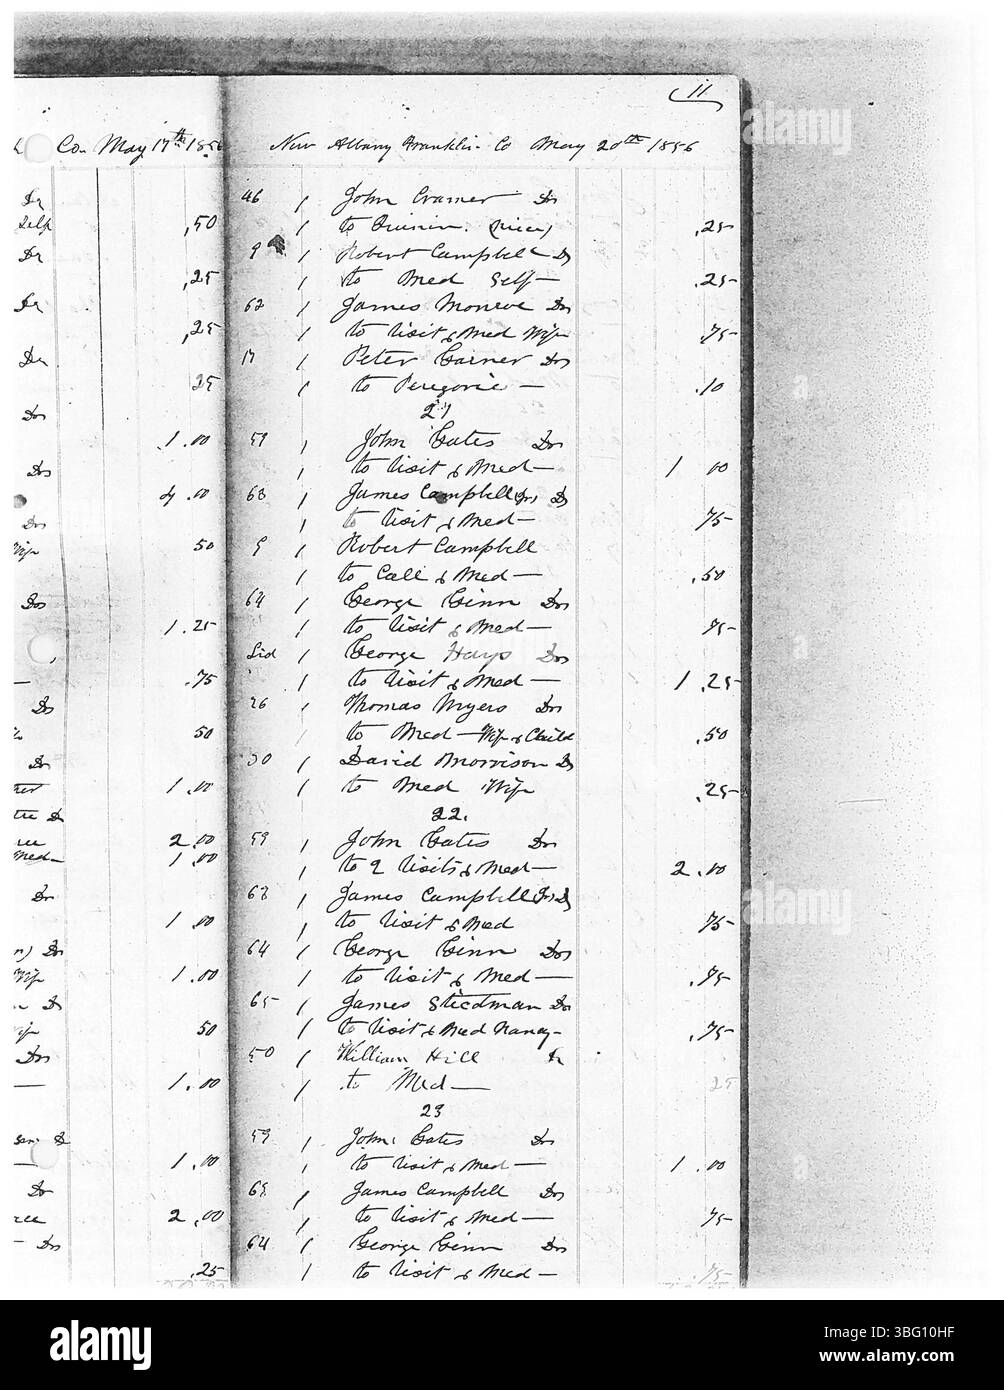 11
Co. May 17th 1856
New Albany Franklin Co May 20th 1856
Dr
Self ,50
Dr
,25
Dr
,25
Dr
25
Dr
1.00
Dr
.00
Dr
Wife 50
Dr
1.25
.75
Dr
50
Dr
1.00
Dr
2.00
Med 1.00
Dr
1.00
Dr
Wife 1.00
Dr
Wife 50
Dr
1.00
Dr
1.00
Dr
2.00
Dr
,25
46 John Cramer Dr
to .25
9 Robert Campbell Dr
to Med Self .25
62 James Monroe Dr
to Visit & Med Wife .75
17 Peter Carner Dr
to Peregoric .10
21
59 John Cates Dr
to Visit & Med 1 00
63 James Campbell Jr Dr
to Visit & Med 75
9 Robert Campbell
to Call & Med .50
64 George Ginn Dr
to Visit & Med 75
George Hays Dr
to Visit & Med 1.25
26 Thomas Myers Dr
to Med Wife & Child .50
30 David Morrison Dr
to Med Wife .25
22.
59 John Cates Dr
to 2 Visits & Med 2.00
63 James Campbell Jr Dr
to Visit & Med 75
64 George Ginn Dr
to Visit & Med .75
65 James Stedman Dr
to Visit & Med Nancy .75
50 William Hill Dr
to Med 25
23
59 John Cates Dr
to Visit & Med 1 00
63 James Campbell Dr
to Visit & Med 75
64 George Ginn Dr
to Visit & Med .75
alamy
a
alamy
a
alamy
Image ID: 3BG10HF
www.alamy.com